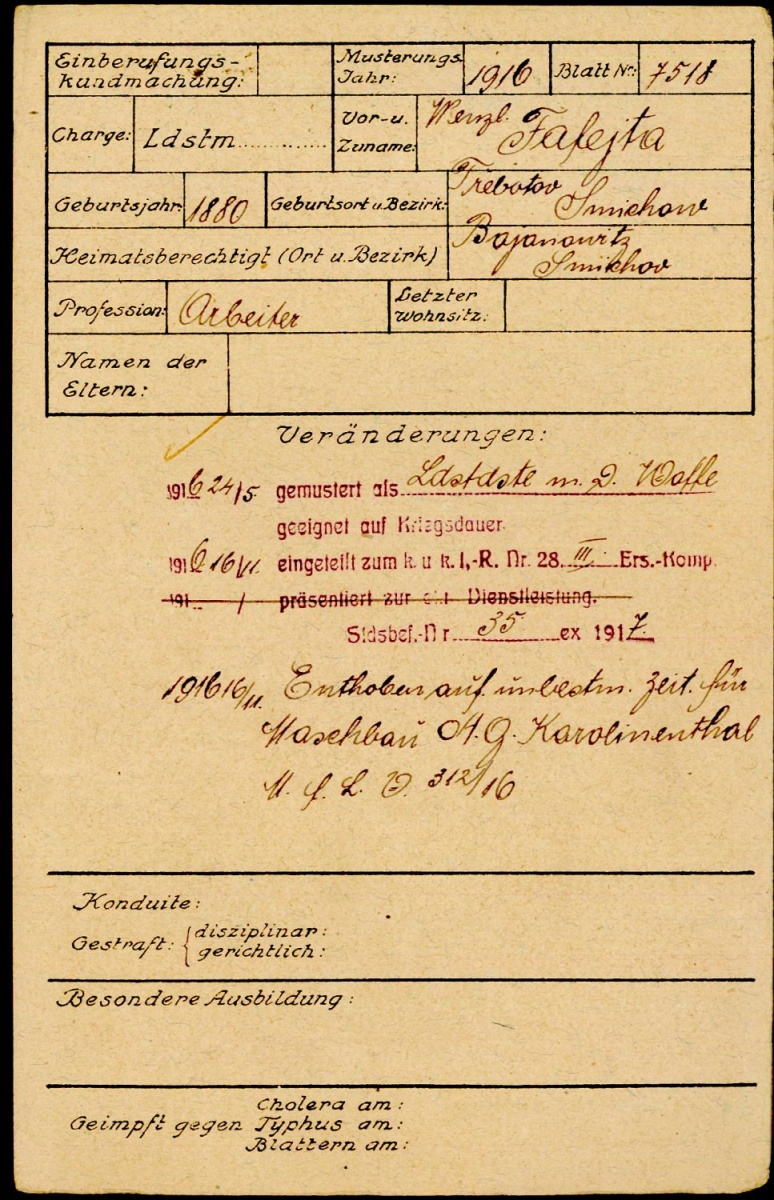 Einberufungs-
kundmachung:
Musterungs
Jahr: 1916
Blatt Nr: 7518
Charge: Ldstm
Vor- u. Wenzl.
Zuname: Fafejta
Geburtsjahr: 1880
Geburtsort u. Bezirk: Třebotov
Smichow
Heimatsberechtigt (Ort u. Bezirk) Bojanowitz
Smichov
Profession: Arbeiter
Letzter
Wohnsitz:
Namen der
Eltern:
Veränderungen:
1916 24/5 gemustert als Ldstdste m. D. Waffe
geeignet auf Kriegsdauer.
1916 16/11 eingeteilt zum k. u k. I.-R. Nr. 28. III. Ers.-Komp.
191 / präsentiert zur Dienstleistung.
Stdsbef.-Nr 35 ex 1917.
1916 16/11. Enthoben auf unbestm. Zeit. für
Maschbau A. G. Karolinenthal
M. f. L. V. 312/16
Konduite:
Gestraft: { disziplinar:
gerichtlich:
Besondere Ausbildung:
Cholera am:
Geimpft gegen Typhus am:
Blattern am: